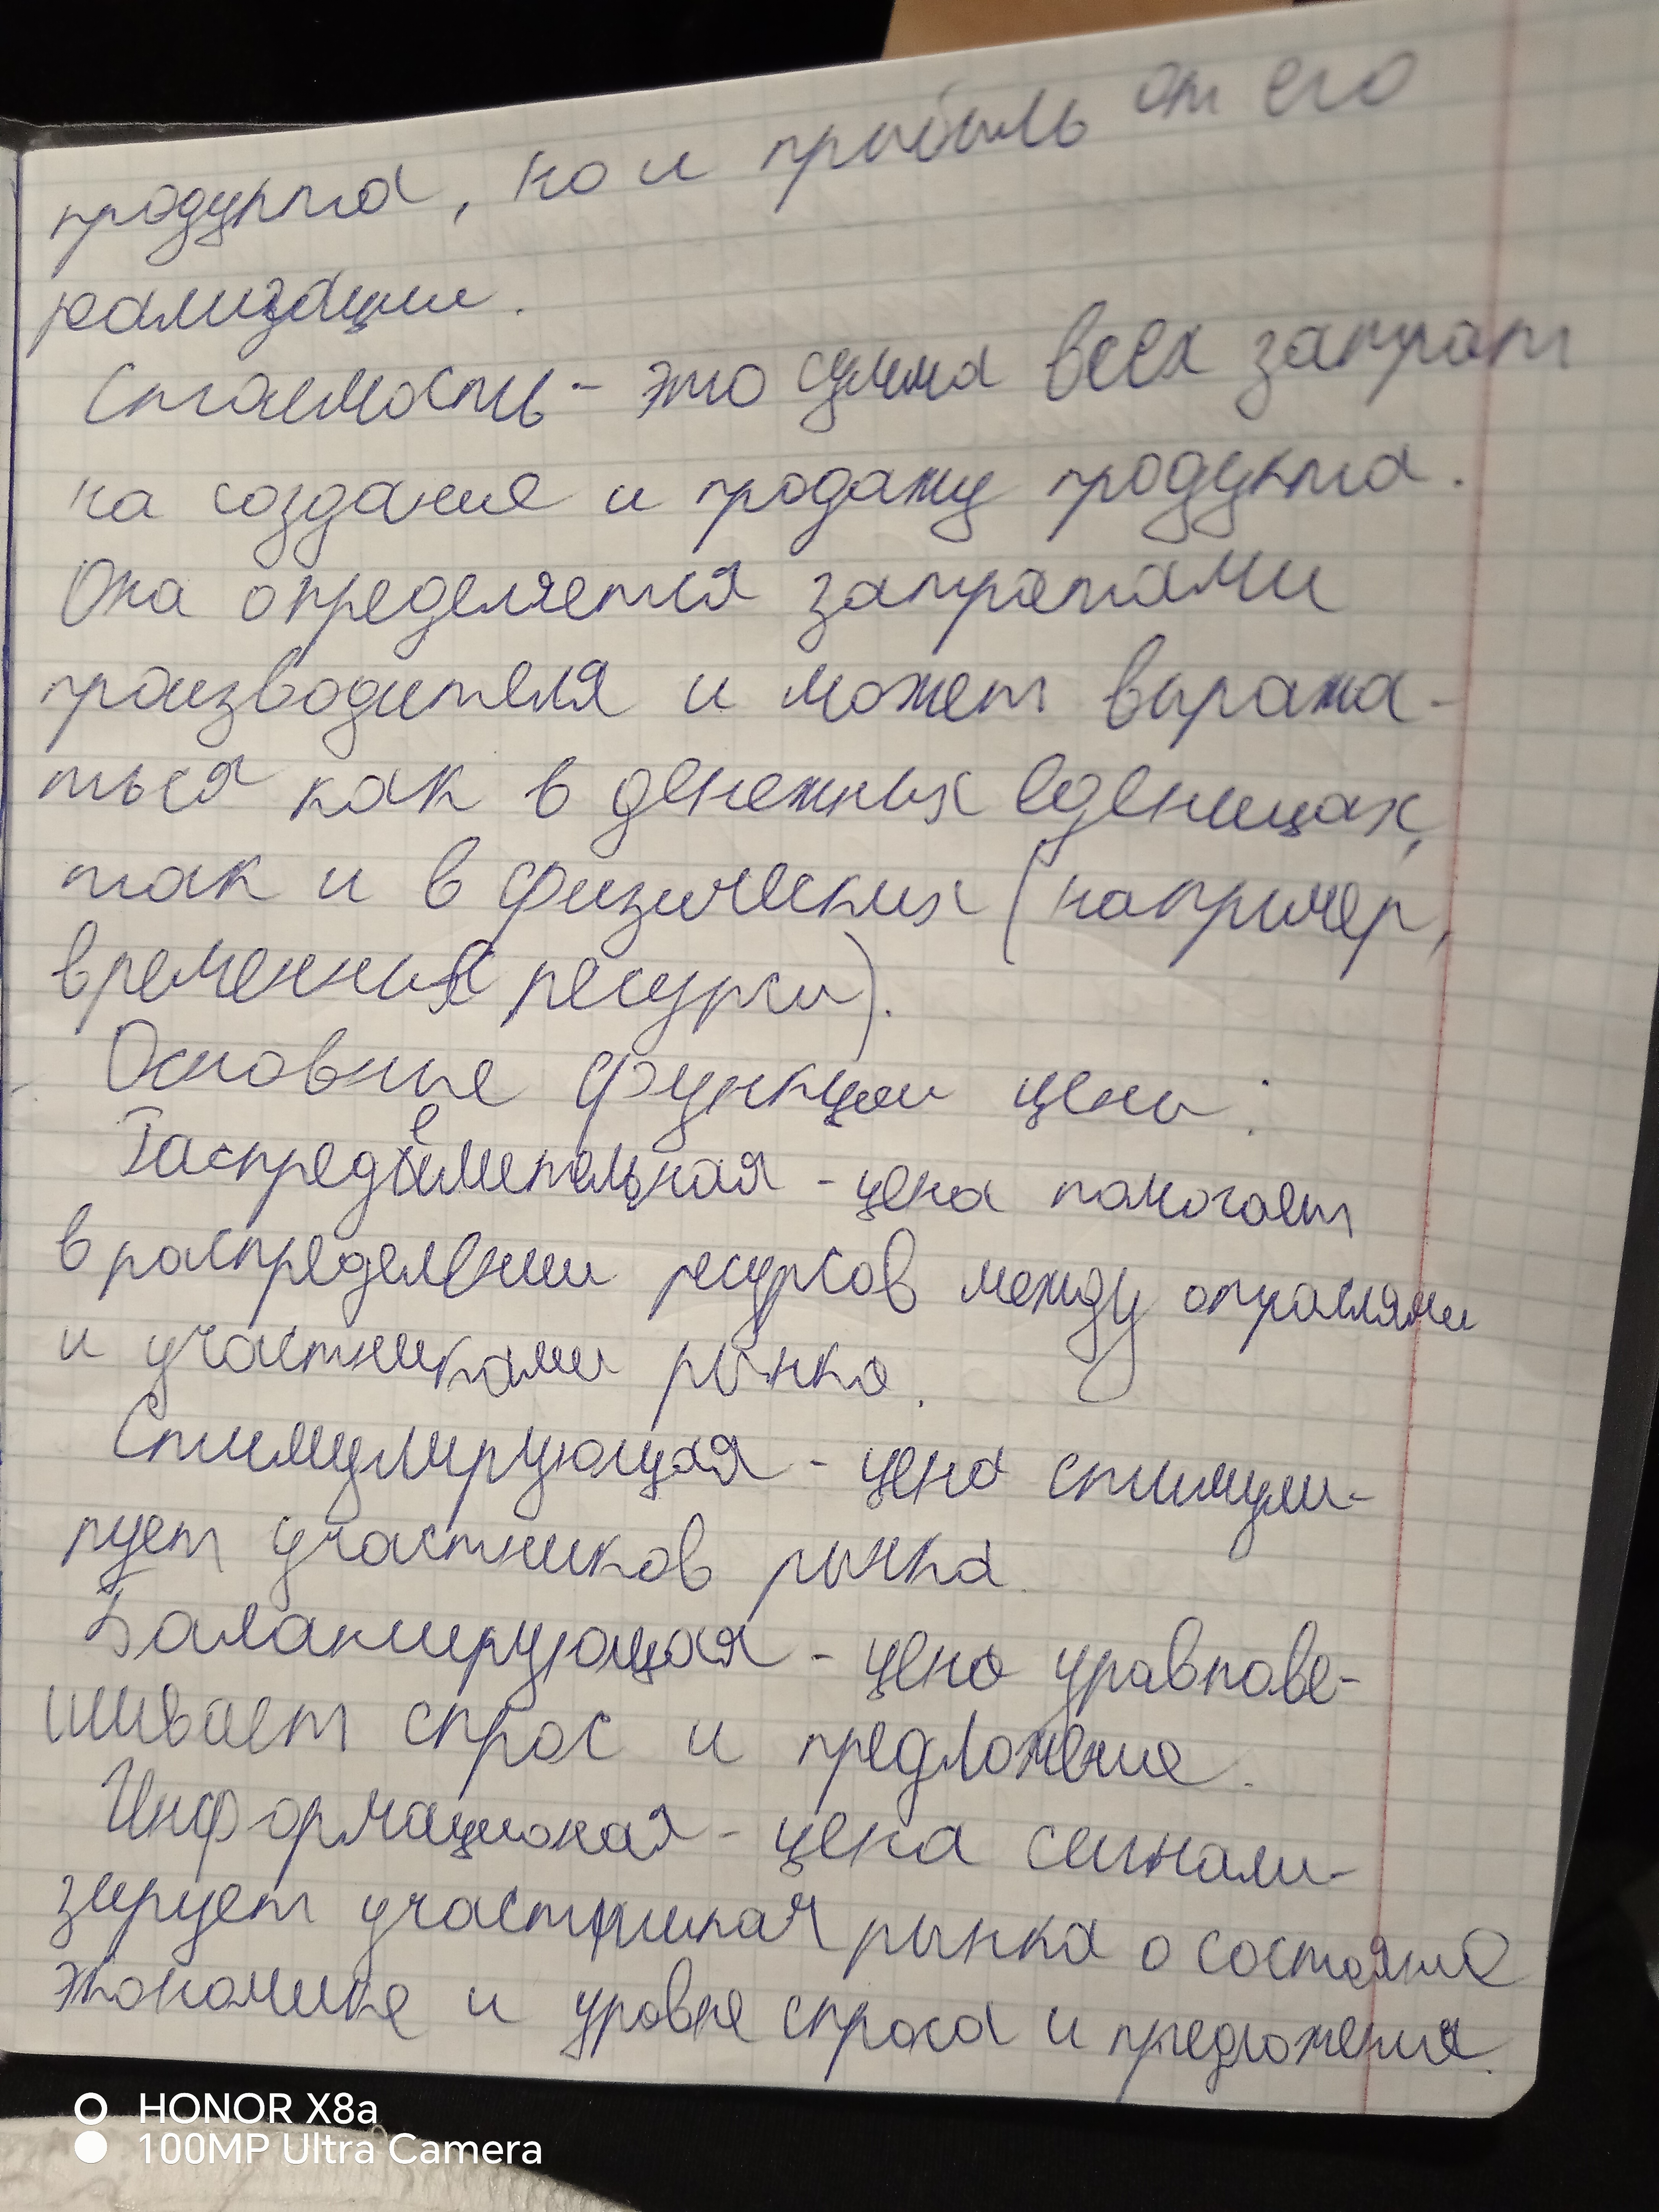 продукта, но и прибыль от его
реализации.
Стоемость - это сумма всех затрат
на создания и продажу продукта.
Она определяется затратами
производителя и может выража-
ться как в денежных еденицах,
так и в физических (например,
временных ресурсы).
Основные функции цены:
Распределительная - цена помогает
в распределении ресурсов между отраслями
и участниками рынка.
Стимулирующая - цена стимули-
рует участников рынка.
Балансирующая - цена уравнове-
шивает спрос и предложение.
Информационая - цена сигнали-
зирует участникам рынка о состояние
экономике и уровне спроса и предложения.
HONOR X8a
100MP Ultra Camera